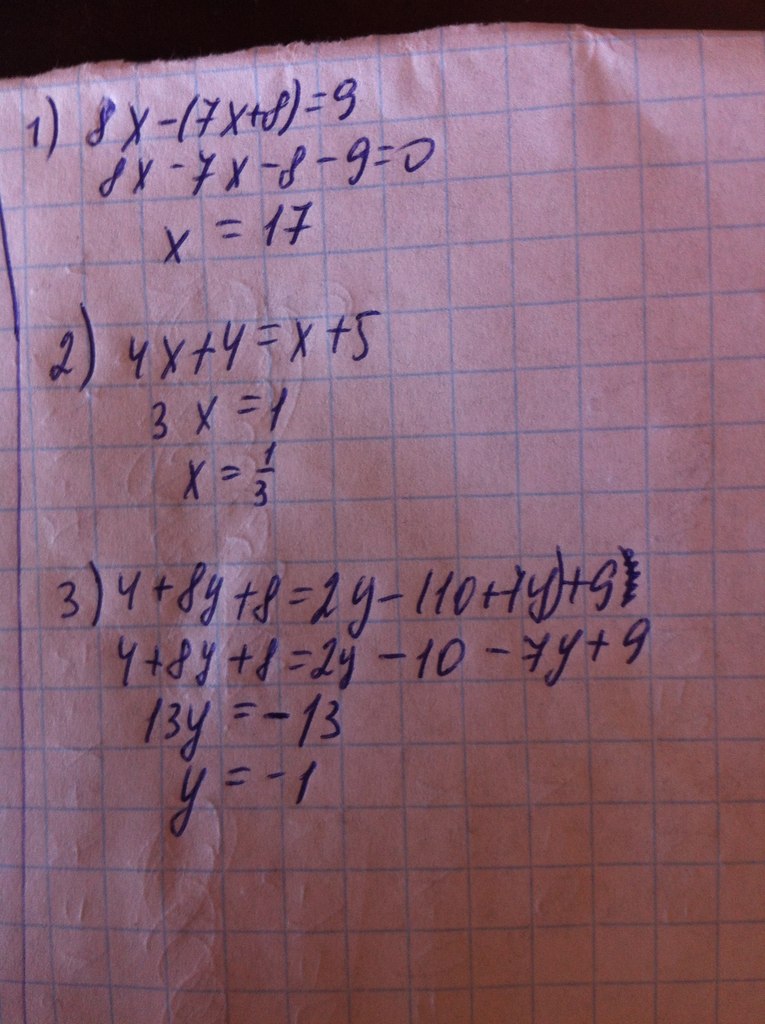 1) 8x-(7x+8)=9
8x-7x-8-9=0
x = 17
2) 4x+4=x+5
3x=1
x=1/3
3) 4+8y+8=2y-(10+7y)+9
4+8y+8=2y-10-7y+9
13y=-13
y=-1